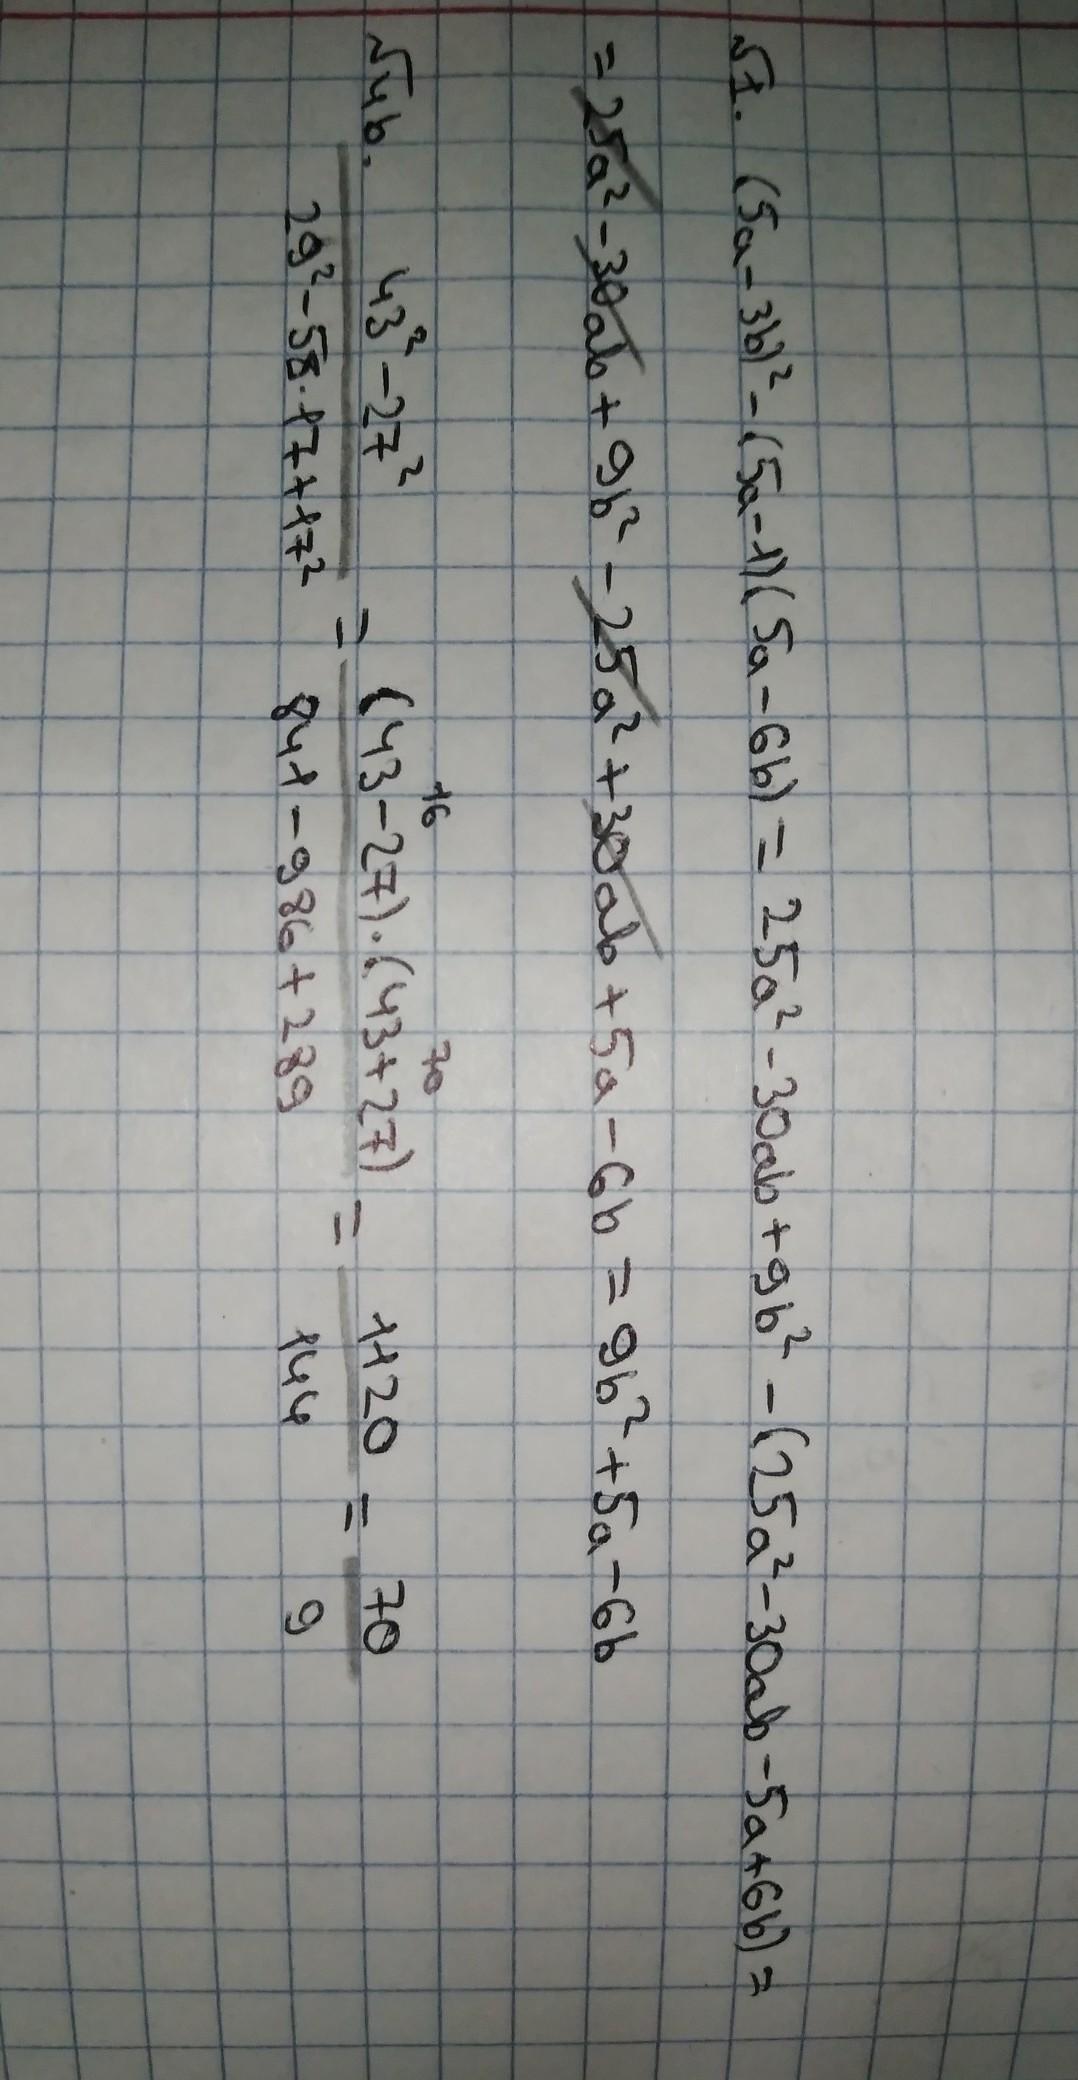 √1. (5a-3b)² - (5a-1)(5a-6b) = 25a² - 30ab + 9b² - (25a² - 30ab - 5a + 6b) =
= 25a² - 30ab + 9b² - 25a² + 30ab + 5a - 6b = 9b² + 5a - 6b
16 70
√4b. 43² - 27² / 29² - 58·17 + 17² = (43-27)·(43+27) / 841 - 986 + 289 = 1120 / 144 = 70 / 9